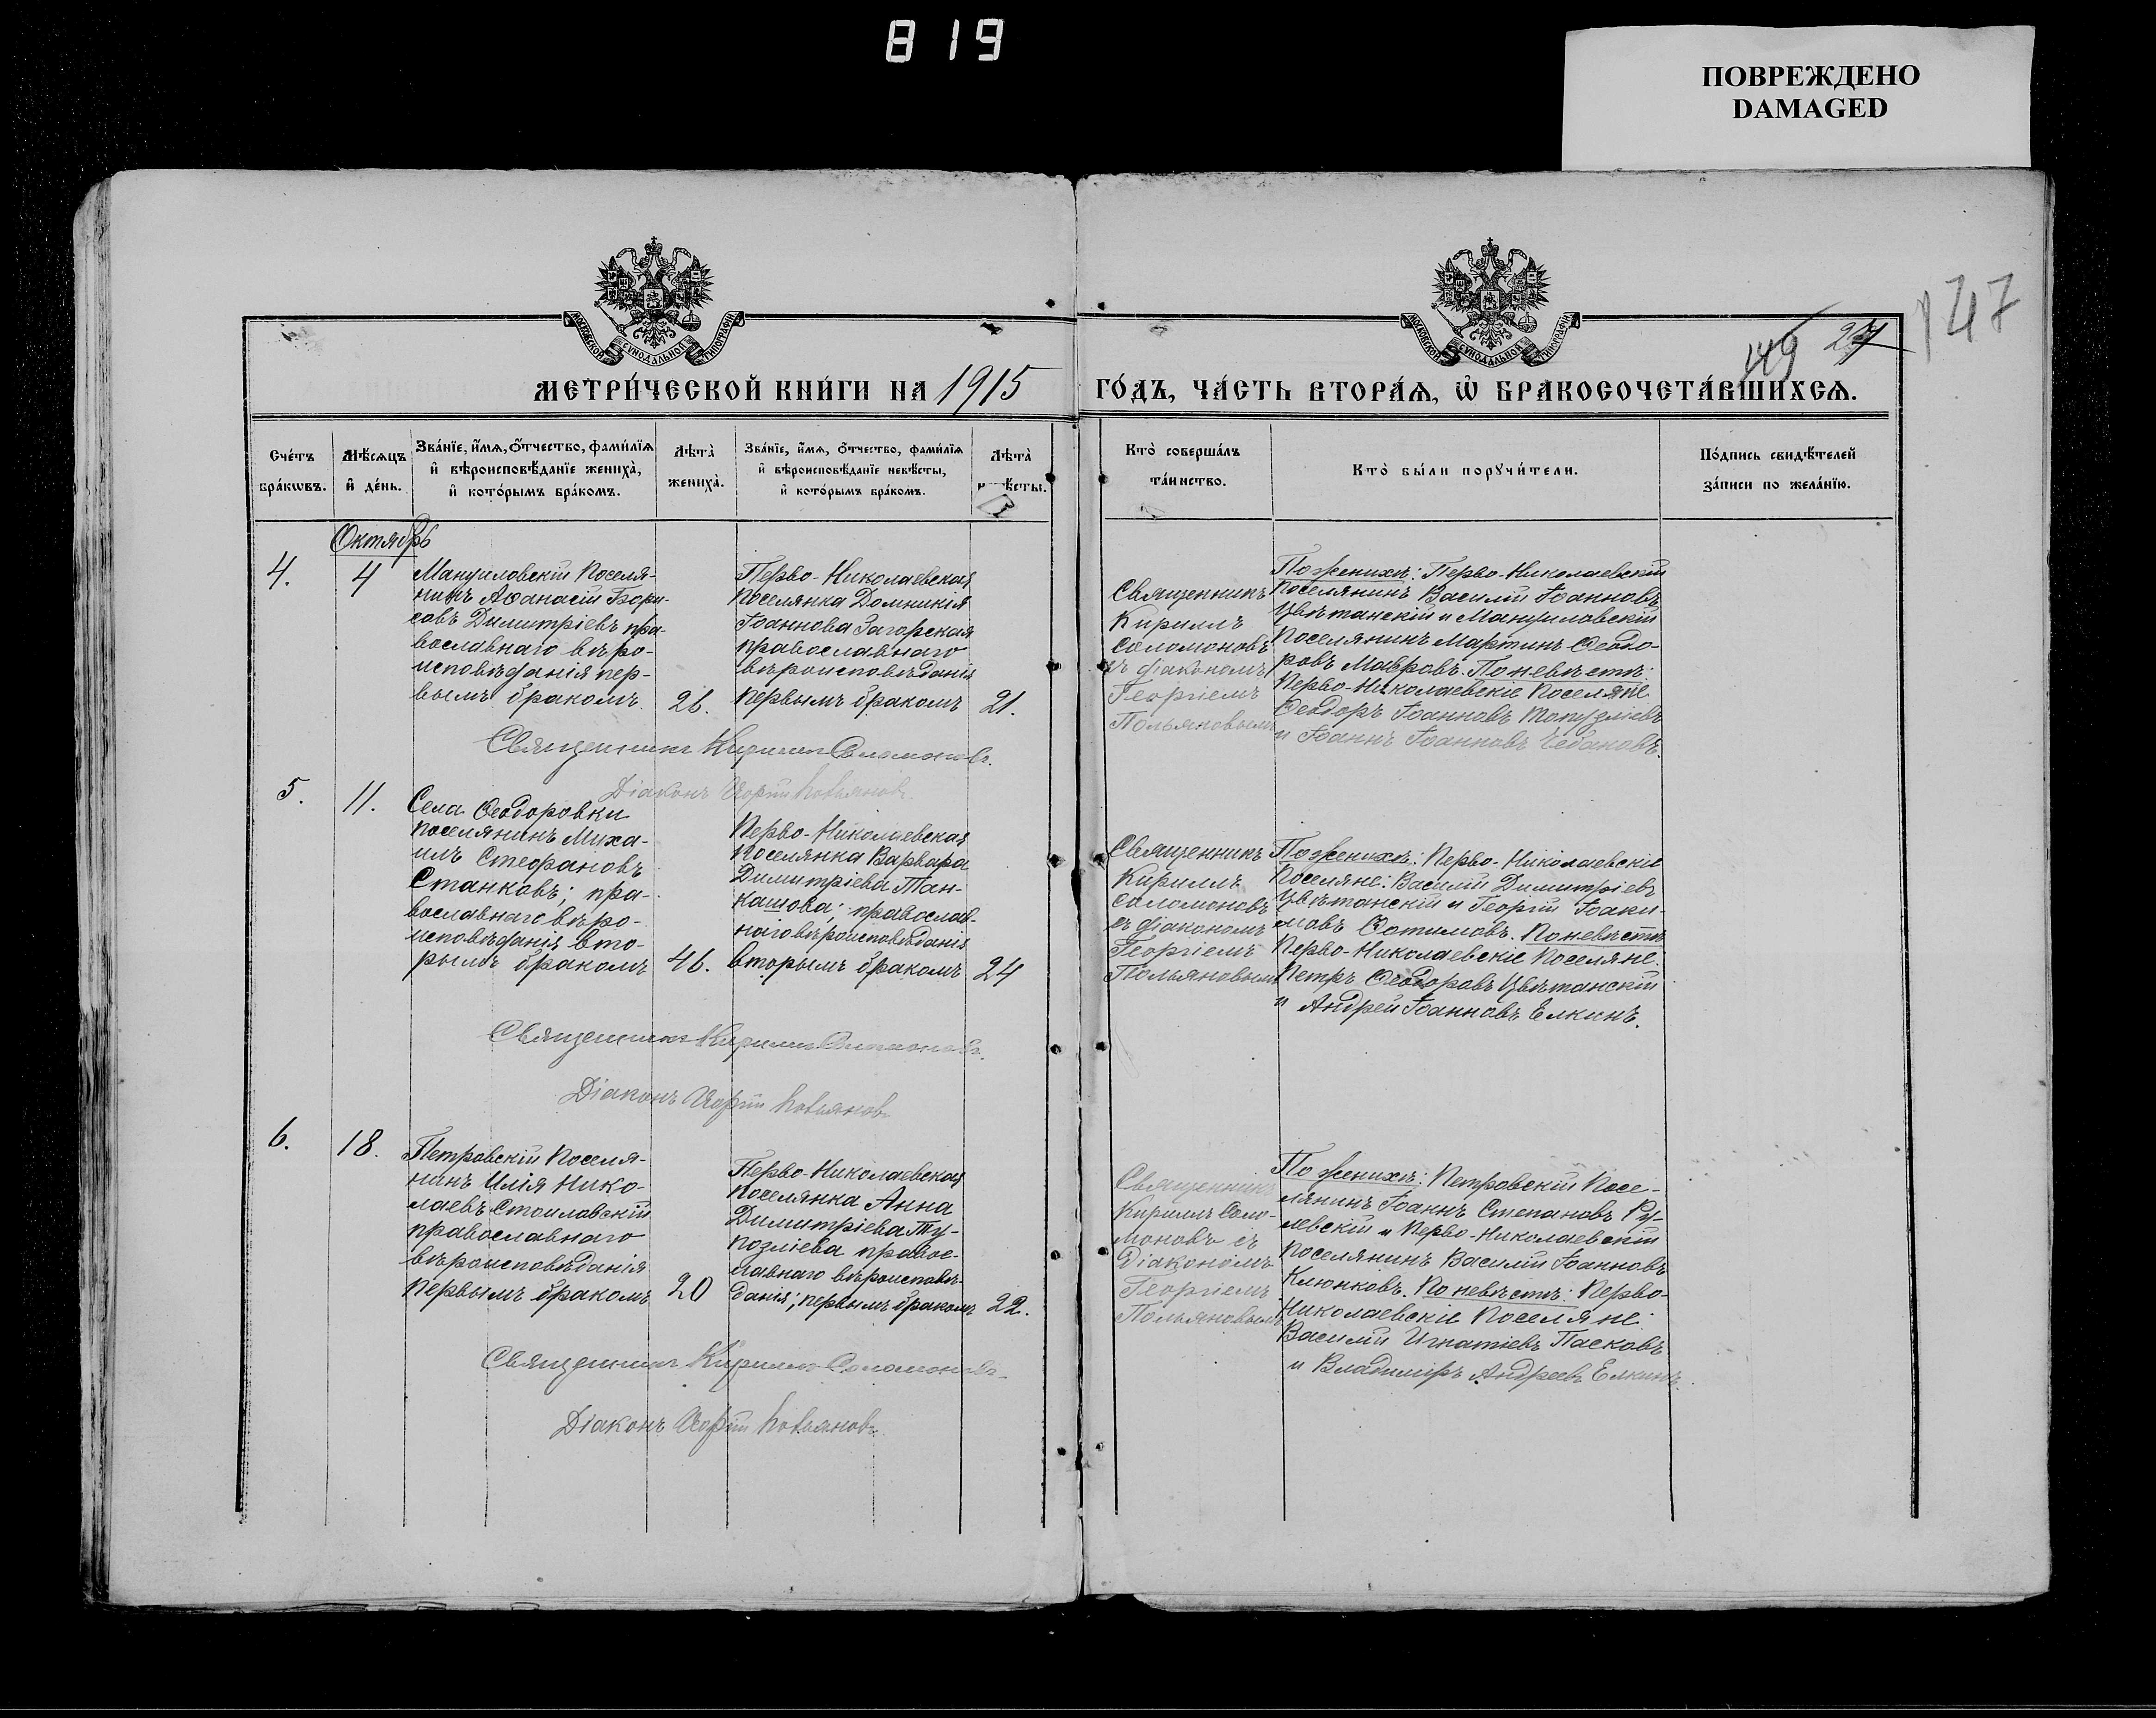 819
ПОВРЕЖДЕНО
DAMAGED
147
149 27
МЕТРИ́ЧЕСКОЙ КНИ́ГИ НА 1915
ГО́ДЪ, ЧА́СТЬ ВТОРА́Я, Ѡ БРАКОСОЧЕТА́ВШИХСЯ.
Сче́тъ бра́кѡвъ.
Мѣ́сяцъ и де́нь.
Зва́нїе, и́мя, о́тчество, фами́лїя
и вѣроисповѣ́данїе жениха̀,
и кото́рымъ бра́комъ.
Лѣта̀ жениха̀.
Зва́нїе, и́мя, о́тчество, фами́лїя
и вѣроисповѣ́данїе невѣ́сты,
и кото́рымъ бра́комъ.
Лѣта̀
Кто̀ соверша́лъ
та́инство.
Кто̀ бы́ли порꙋчи́тели.
По́дпись свидѣ́телей
за́писи по жела́нїю.
Октябрь
4.
4
Мануиловскій поселя-
нинъ Аѳанасій Бори-
совъ Димитріевъ пра-
вославнаго вѣро-
исповѣданія пер-
вымъ бракомъ
26.
Перво-Николаевская
поселянка Домникія
Іоаннова Загорская
православнаго
вѣроисповѣданія
первымъ бракомъ
21.
Священникъ
Кириллъ
Соломоновъ
съ діакономъ
Георгіемъ
Польяновымъ
По женихѣ: Перво-Николаевскій
поселянинъ Василій Іоанновъ
Цвѣтанскій и Мануиловскій
поселянинъ Мартинъ Ѳеодо-
ровъ Мавровъ. По невѣстѣ:
Перво-Николаевскіе поселяне
Ѳеодоръ Іоанновъ Топузліевъ
и Іоаннъ Іоанновъ Чебановъ.
Священникъ Кириллъ Соломоновъ.
Діаконъ Георгій Польяновъ
5.
11.
Села Ѳеодоровки
поселянинъ Миха-
илъ Стефановъ
Станковъ; пра-
вославнаго вѣро-
исповѣданія вто-
рымъ бракомъ
46.
Перво-Николаевская
поселянка Варвара
Димитріева Тан-
кашова; православ-
наго вѣроисповѣданія
вторымъ бракомъ
24
Священникъ
Кириллъ
Соломоновъ
съ діакономъ
Георгіемъ
Польяновымъ
По женихѣ: Перво-Николаевскіе
поселяне: Василій Димитріевъ
Цвѣтанскій и Георгій Іоаки-
мовъ Фотимовъ. По невѣстѣ
Перво-Николаевскіе поселяне:
Петръ Ѳеодоровъ Цвѣтанскій
и Андрей Іоанновъ Елкинъ.
Священникъ Кириллъ Соломоновъ.
Діаконъ Георгій Польяновъ
6.
18.
Петровскій поселя-
нинъ Илія Нико-
лаевъ Стоиловскій
православнаго
вѣроисповѣданія
первымъ бракомъ
20
Перво-Николаевская
поселянка Анна
Димитріева Ту-
позліева правос-
лавнаго вѣроисповѣ-
данія; первымъ бракомъ
22.
Священникъ
Кириллъ Соло-
моновъ съ
Діакономъ
Георгіемъ
Польяновымъ
По женихѣ: Петровскій посе-
лянинъ Іоаннъ Степановъ Ру-
левскій и Перво-Николаевскій
поселянинъ Василій Іоанновъ
Клюнковъ. По невѣстѣ: Перво-
Николаевскіе поселяне:
Василій Игнатіевъ Пасковъ
и Владиміръ Андреевъ Елкинъ.
Священникъ Кириллъ Соломоновъ.
Діаконъ Георгій Польяновъ